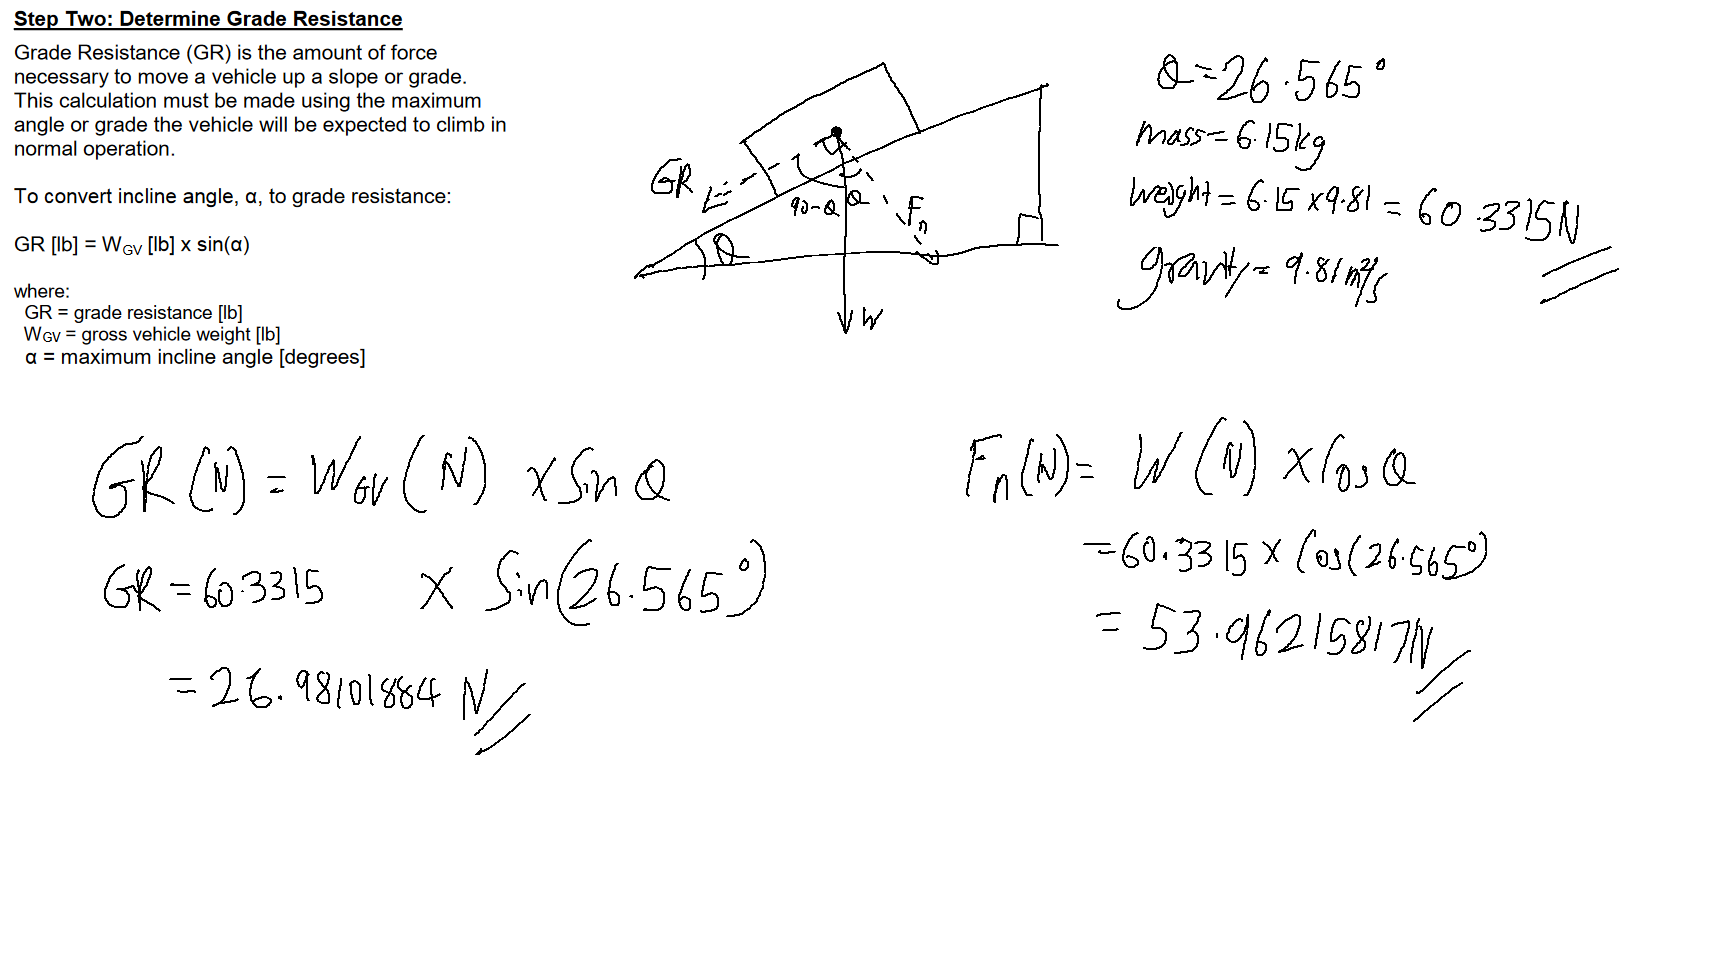 Step Two: Determine Grade Resistance
Grade Resistance (GR) is the amount of force
necessary to move a vehicle up a slope or grade.
This calculation must be made using the maximum
angle or grade the vehicle will be expected to climb in
normal operation.
To convert incline angle, α, to grade resistance:
GR [lb] = WGV [lb] x sin(α)
where:
GR = grade resistance [lb]
WGV = gross vehicle weight [lb]
α = maximum incline angle [degrees]
GR
90-θ
θ
Fn
θ
W
θ=26.565°
mass=6.15kg
weight = 6.15 x9.81 = 60.3315N
gravity= 9.81m²/s
GR (N) = WGV (N) x Sin θ
GR = 60.3315 x Sin(26.565°)
= 26.98101884 N
Fn(N)= W (N) x Cos θ
=60.3315 x Cos(26.565°)
= 53.96215817N